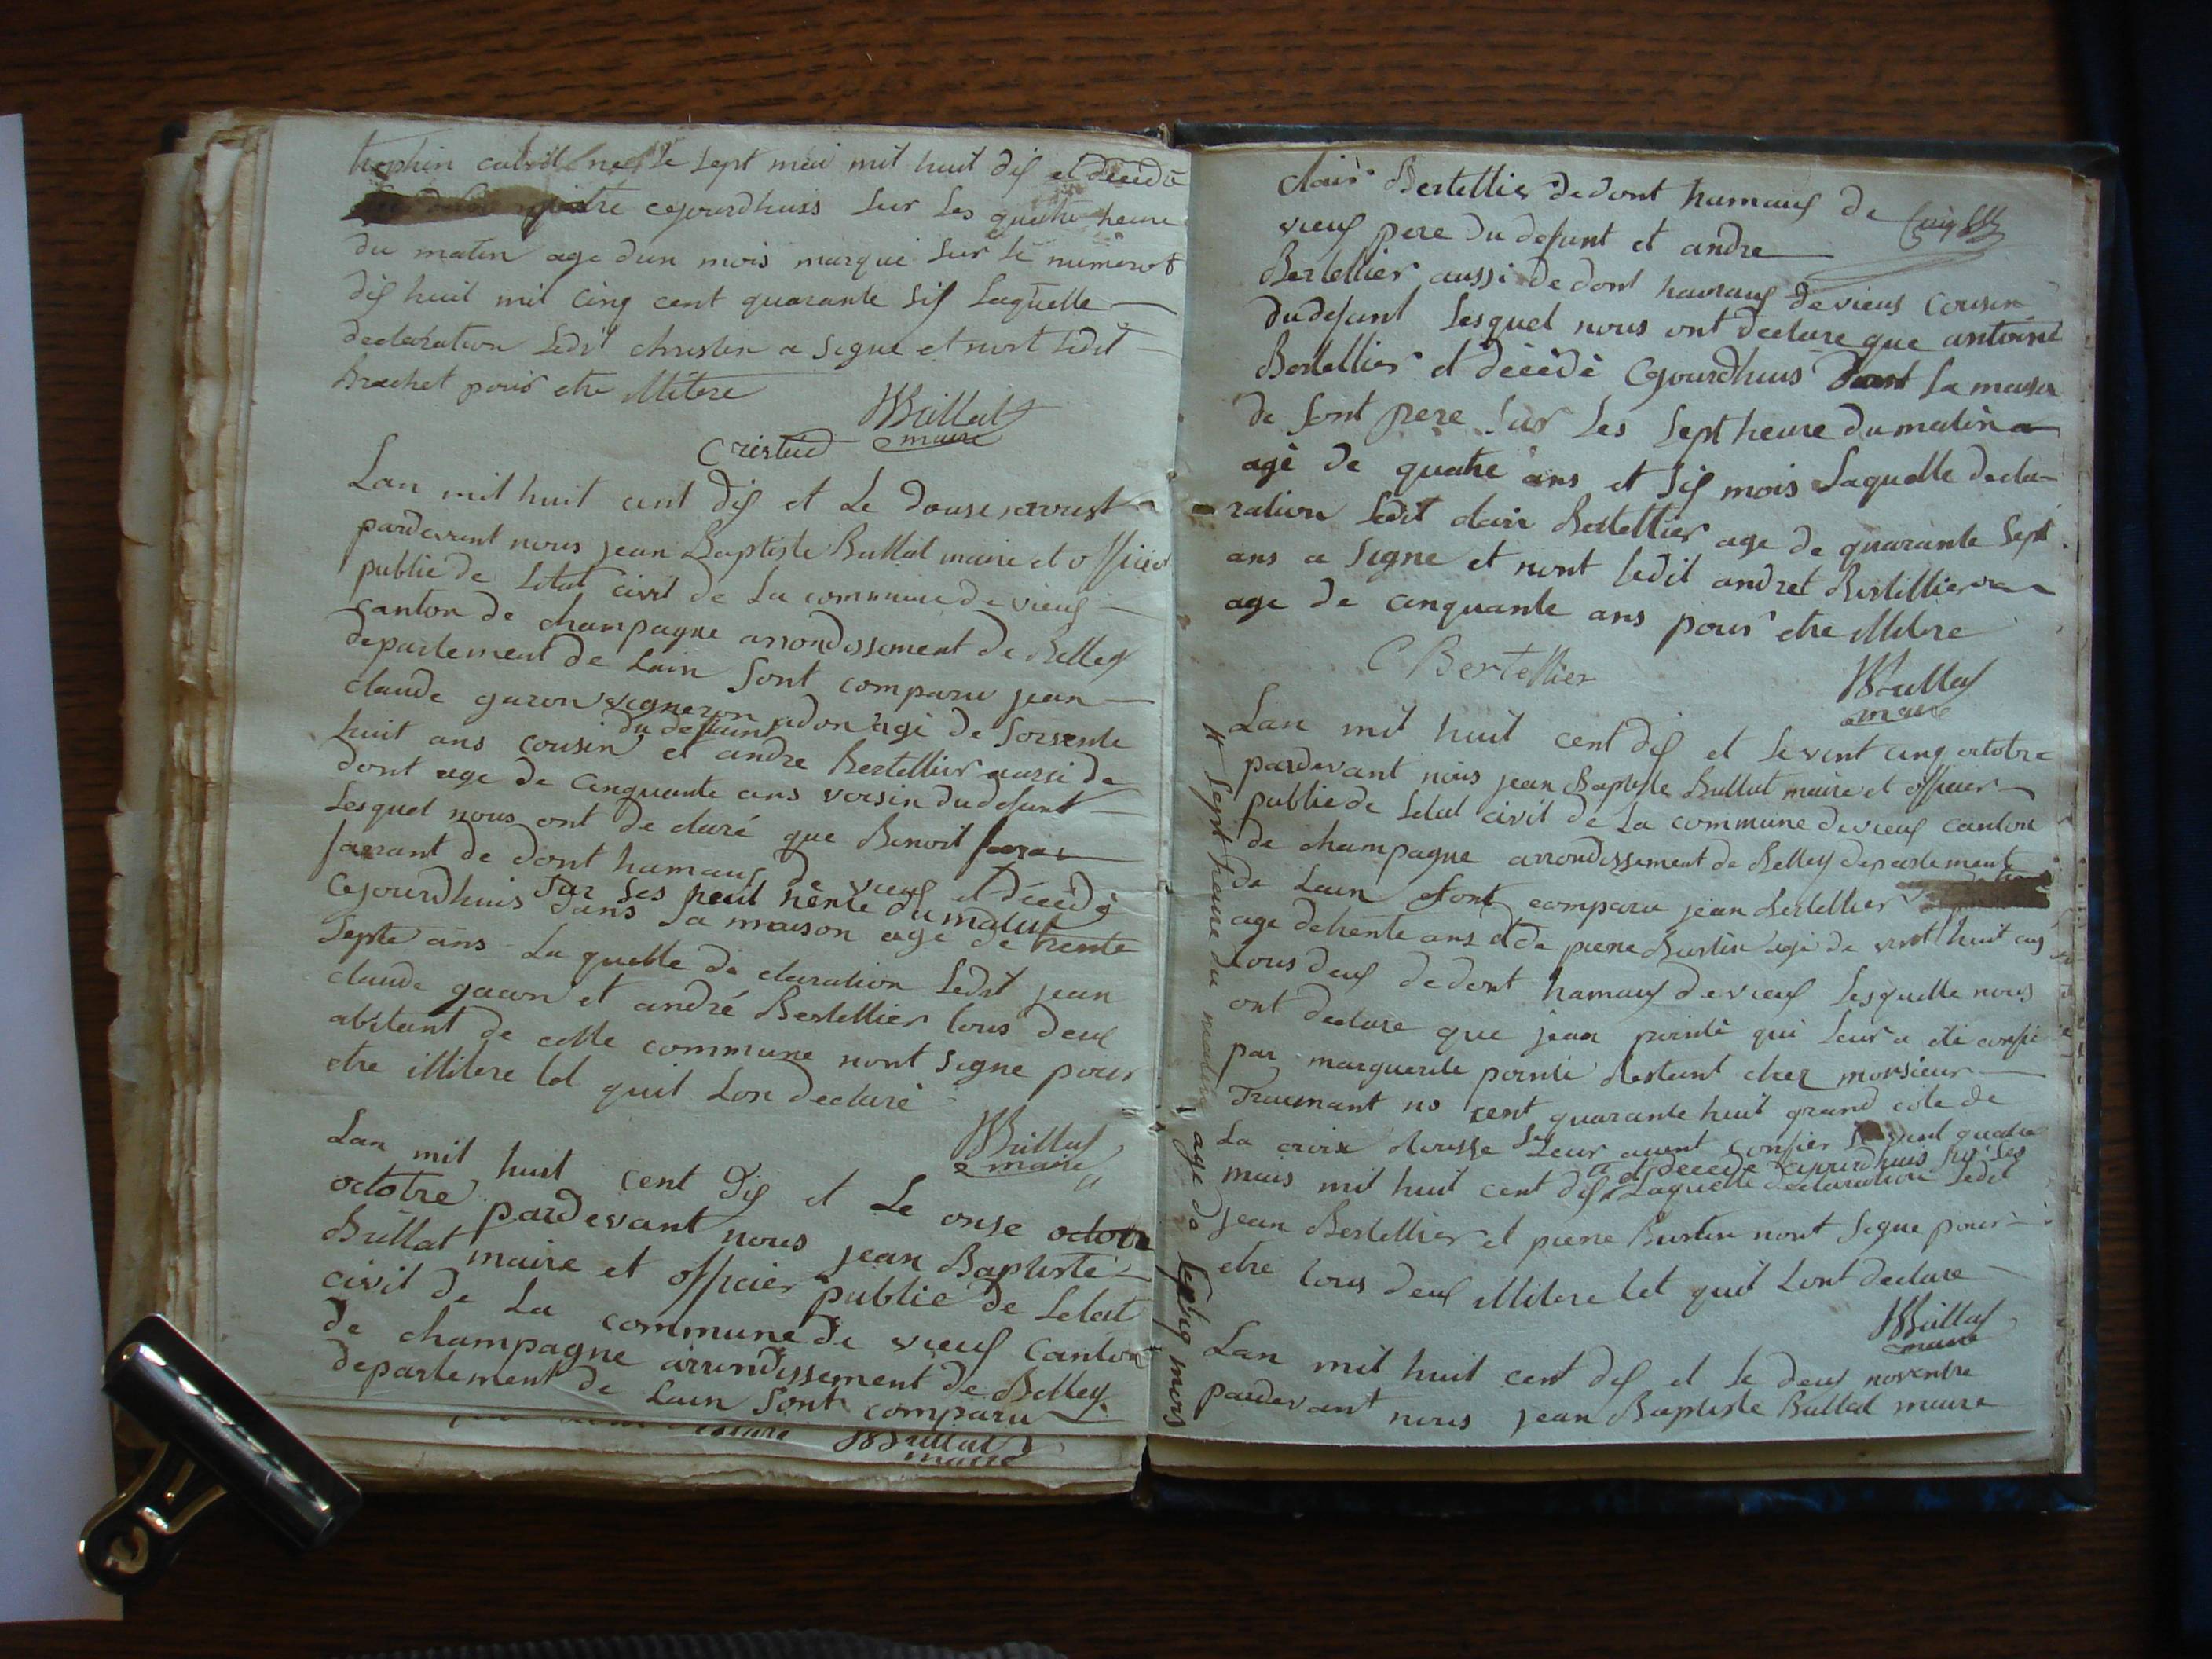 ne le sept mai mil huit dix et décédé
cejourdhuis sur les quatre heure
du matin age dun mois marqué sur le numerot
dix huit mil cinq cent quarante six laquelle
declaration ledit christin a signe et nont ledit
Brachet pour etre illitere
JBBullat
maire
Cristin
Lan mil huit cent dix et Le douse aoust
pardevant nous jean Baptiste Bullat maire et officier
public de Letat civil de La commune de vieux
canton de champagne arrondissement de Belley
departement de Lain sont comparu jean
claude gacon vigneron adon agé de soisente
huit ans cousin du defunt et andre Bertellier aussi de
dont age de cinquante ans voisin du defunt
Lesquel nous ont de claré que Benoit
farrant de dont hamaux de vieux et décédé
cejourdhuis sur les heure du matin
dans sa maison age de trente
septe ans La quelle de claration Ledit jean
claude gacon et andré Bertellier tous deux
abitant de cette commune nont signe pour
etre illitere tel quil Lon declaré
JBBullat
maire
Lan mil huit cent dix et Le onse octobre
octobre pardevant nous jean Baptiste
Bullat maire et officier public de Letat
civil de La commune de vieux canton
de champagne arrondissement de Belley
departement de Lain sont comparu
JBBullat
maire
clair Bertellier de dont hamaux de
vieux pere du defunt et andre
Bertellier aussi de dont hamaux de vieux cousin
du defunt Lesquel nous ont declare que antoine
Bertellier et décédé cejourdhuis dant la maison
de sont pere sur Les sept heure du matin
agé de quatre ans et six mois Laquelle decla-
ration Ledit clair Bertellier age de quarante sept
ans a signe et nont ledit andret Bertellier
age de cinquante ans pour etre illitere
C Bertellier
JBBullat
maire
Lan mil huit cent dix et le vint cinq octobre
pardevant nous jean Baptiste Bullat maire et officier
public de Letat civil de La commune de vieux canton
de champagne arrondissement de Belley departement
de Lain sont comparu jean Bertellier
age de trente ans et de piere Burtin agé de vint huit ans
tous deux de dont hamaux de vieux Lesquelle nous
ont declare que jean pointé qui Leur a été confié
par marguerite pointé restant chez monsieur
no cent quarante huit grand cote de
La croix Rousse Leur ayent confier le vint quatre
mais mil huit cent dix et decede cejourdhuis sur les
Laquelle declaration Ledit
jean Bertellier et piere Burtin nont signe pour
etre tous deux illitere tel quil Lont declare
JBBullat
maire
sept heure du matin age de sept mois
Lan mil huit cent dix et le deux novenbre
pardevant nous jean Baptiste Bullat maire